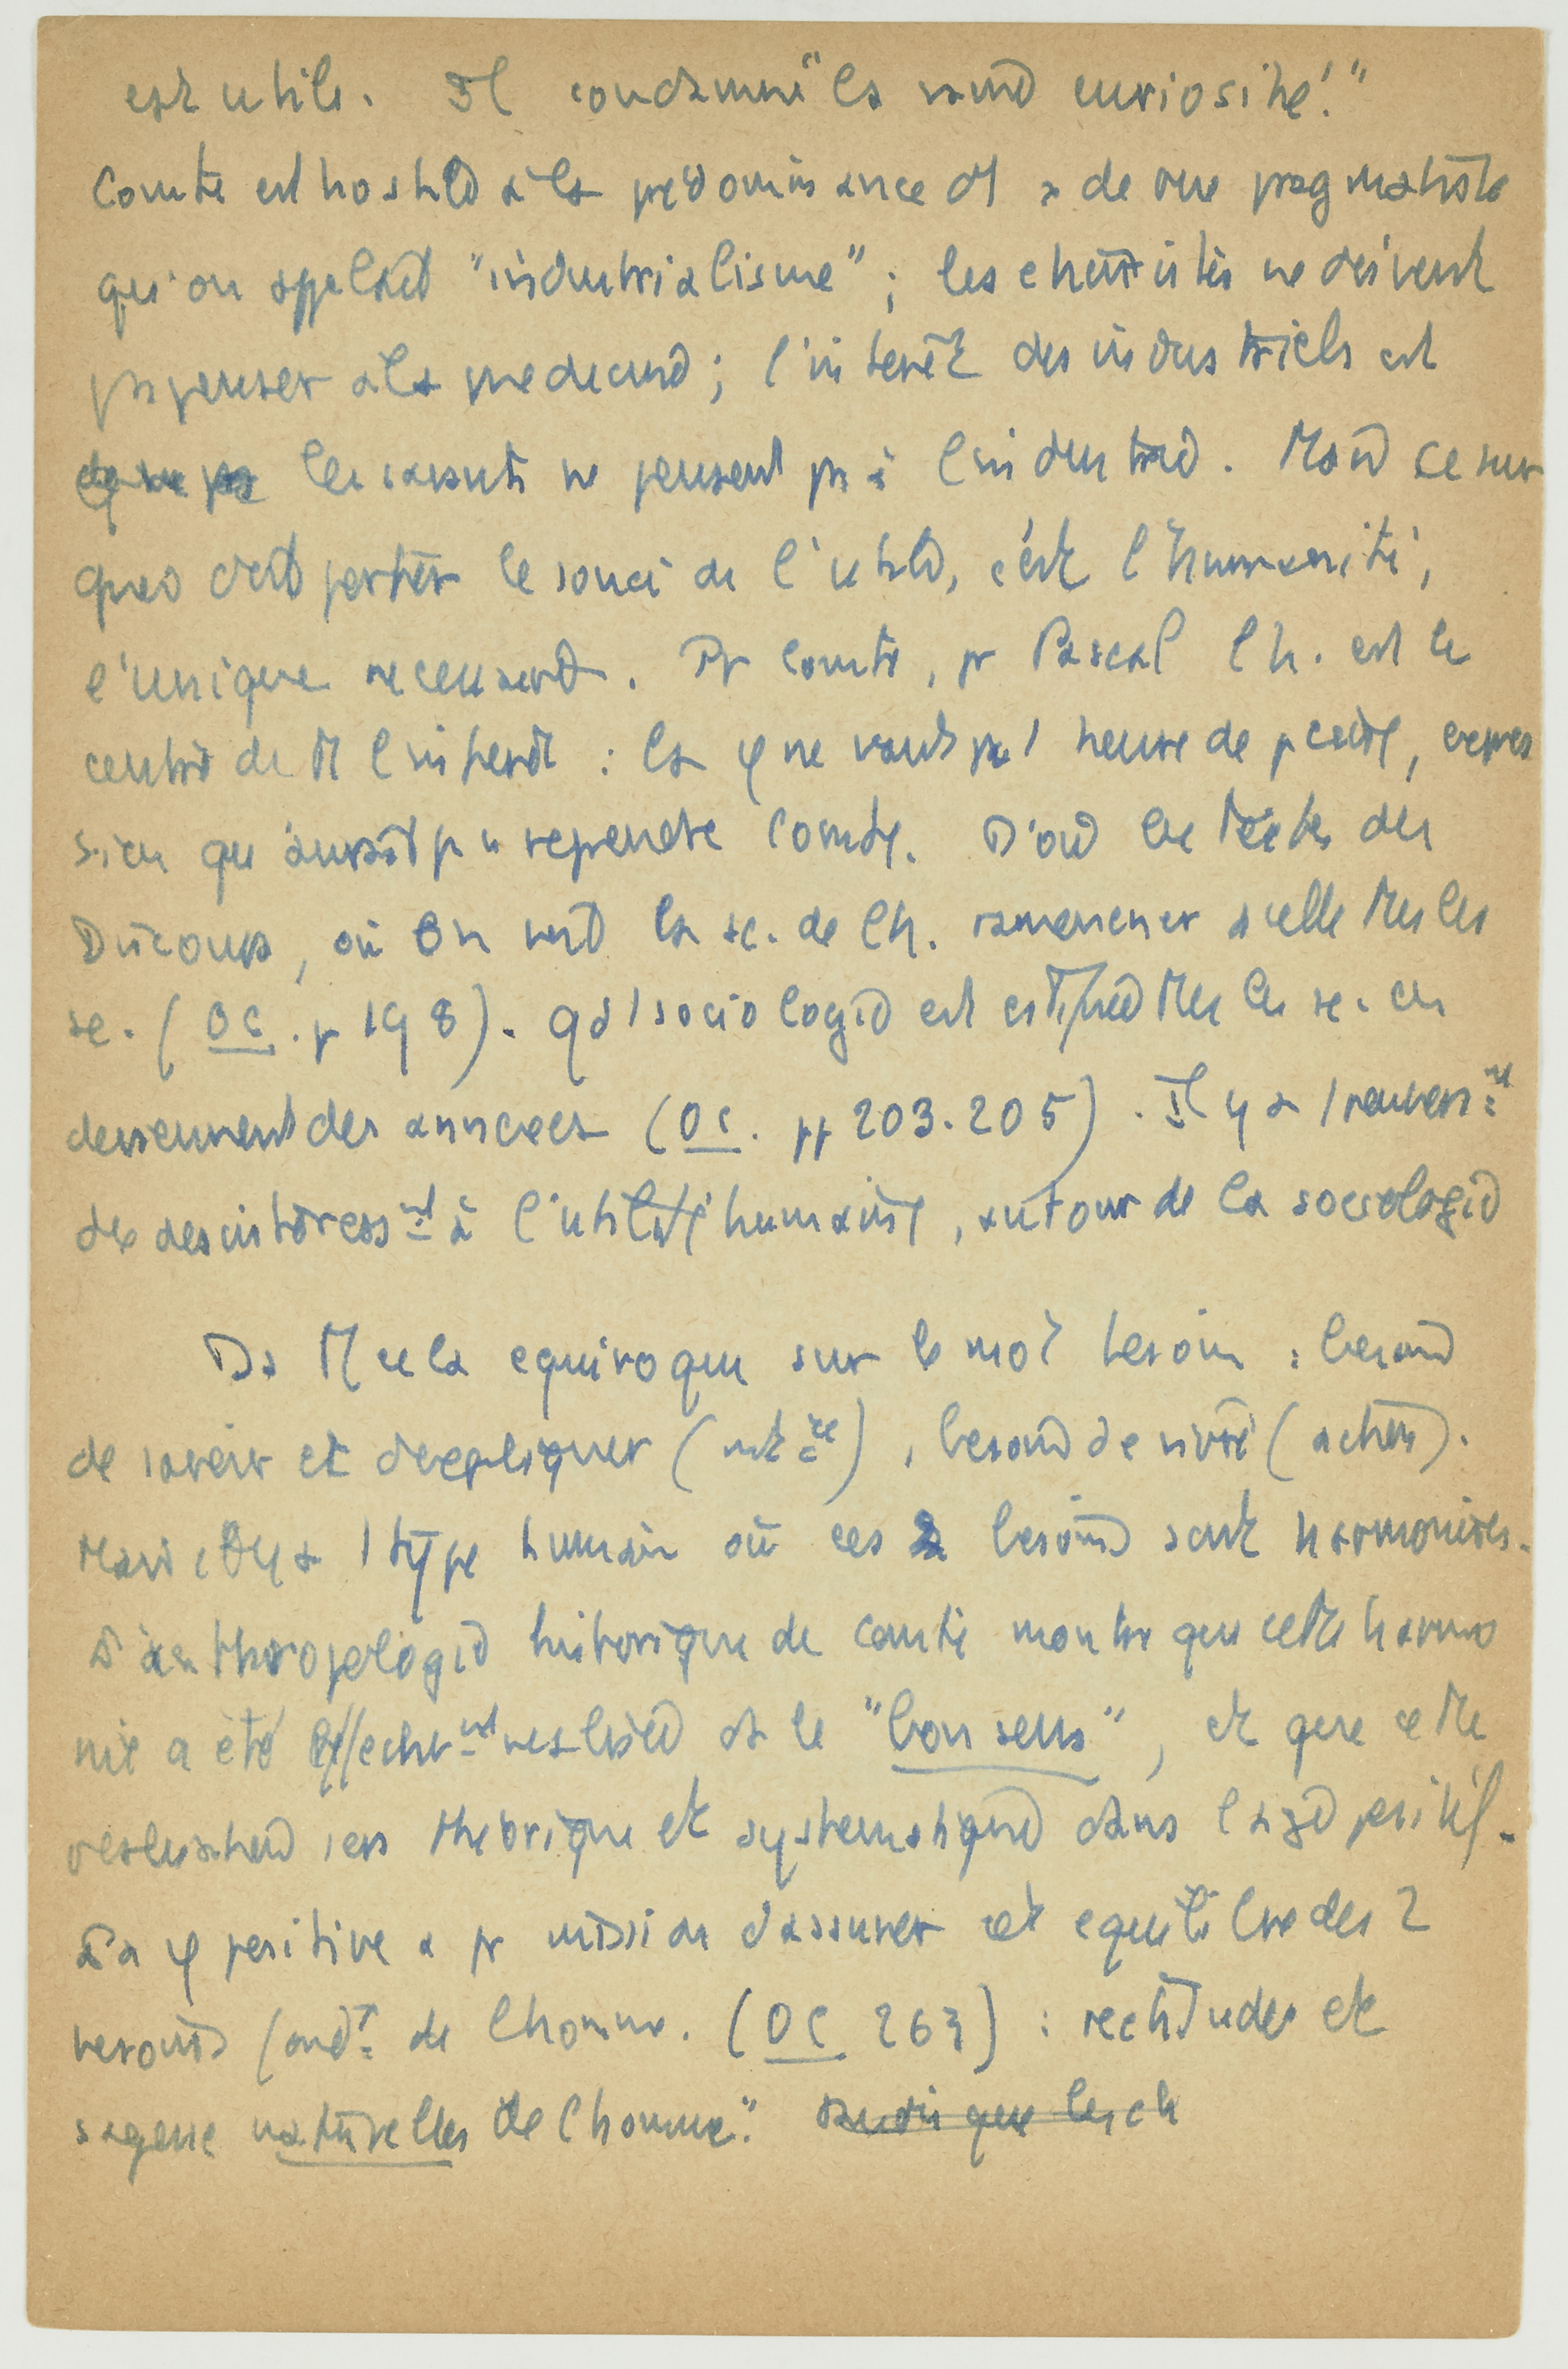 est utile. Il condamne "la vaine curiosité."
Comte est hostile à la prédominance d1 p de vue pragmatiste
qu'on appelait "industrialisme" ; les chimistes ne doivent
pas penser à la médecine ; l'intérêt des industriels est
que les savants ne pensent pas à l'industrie. Mais ce sur
quoi doit porter le souci de l'utile, c'est l'humanité,
l'unique nécessaire. Pr Comte, pr Pascal l'h. est le
centre de tt l'intérêt : la φ ne vaut pas 1 heure de peine, expres
sion qu'aurait pu reprendre Comte. D'où les textes du
Discours, où on voit la sc. de l'h. ramener à elle ttes les
sc. (OC. p 198). Qd 1 sociologie est est ttes les sc. en
deviennent des annexes (OC. pp 203.205). Il y a 1 renvers.nt
du désintéress.nt à l'utilité humaine, autour de la sociologie
Ds tt cela équivoque sur le mot besoin : besoin
de savoir et d'expliquer (), besoin de vivre (action).
Mais il y a 1 type humain où ces 2 besoins sont harmonisés.
L'anthropologie historique de Comte montre que cette harmo
nie a été effectiv.nt réalisée ds le "bon sens", et que cette
réalisation sera théorique et systématique dans l'âge positif.
La φ positive a pr mission d'assurer cet équilibre des 2
besoins fond.x de l'homme. (OC 263) : rectitudes et
sagesse naturelles de l'homme".